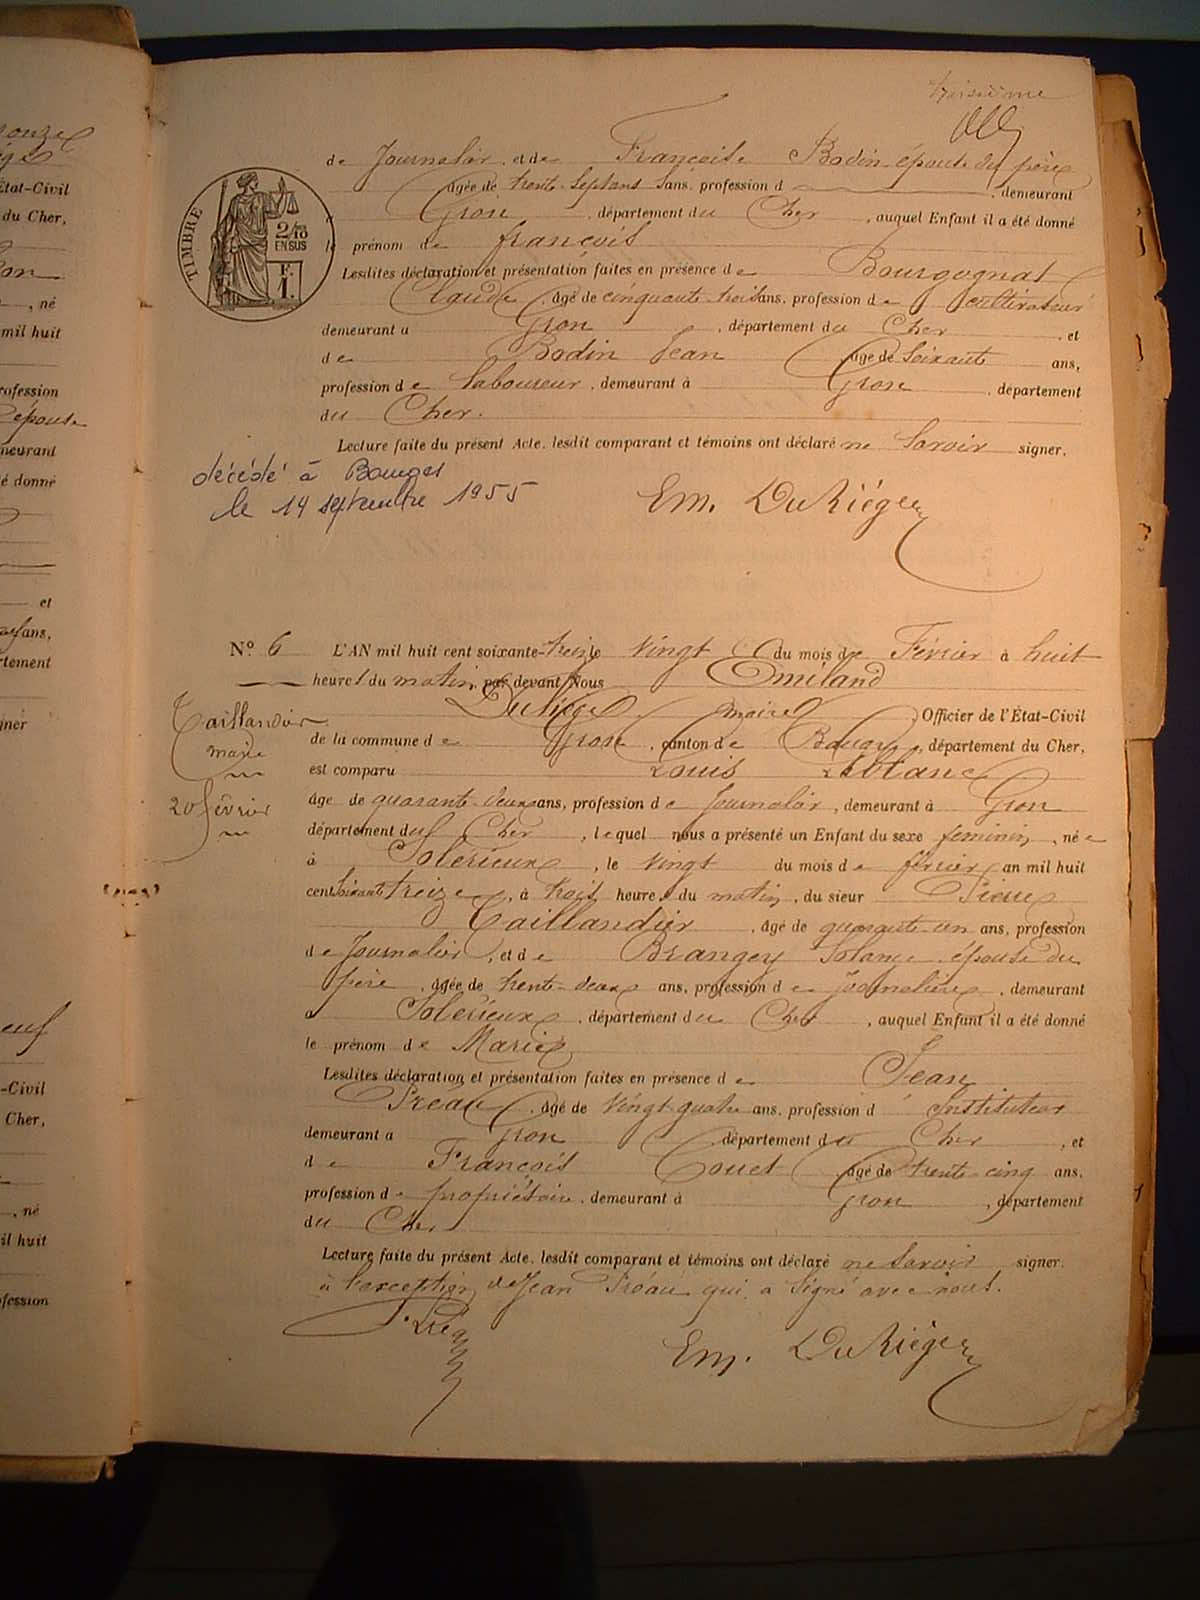 troisième
de Journalier et de Françoise Bodin épouse du père
âgée de trente-sept ans sans, profession d , demeurant
Gron , département du Cher , auquel Enfant il a été donné
le prénom de françois
Lesdites déclaration et présentation faites en présence de Bourgognat
Claude âgé de cinquante trois ans, profession de cultivateur
demeurant a Gron , département du Cher , et
de Bodin Jean âgé de Soixante ans,
profession de laboureur , demeurant à Gron , département
du Cher.
Lecture faite du présent Acte, lesdit comparant et témoins ont déclaré ne savoir signer.
TIMBRE
2/10
EN SUS
décédé à Bourges
le 14 septembre 1955
Em. DuRiéger
No 6 L'AN mil huit cent soixante-treize le vingt du mois de Février à huit
heures du matin, par devant Nous Emiland
Duriéger maire Officier de l'État-Civil
de la commune de Gron , canton de Baugy , département du Cher,
est comparu Louis Leblanc
âgé de quarante-deux ans, profession de Journalier , demeurant à Gron
département du Cher , lequel nous a présenté un Enfant du sexe féminin , née
à Solérieux , le vingt du mois de février an mil huit
cent soixante treize , à trois heures du matin , du sieur Pierre
Taillandier , âgé de quarante-un ans, profession
de Journalier , et de Brangey Solange épouse du
père , âgée de trente-deux ans, profession de journalière , demeurant
a Solérieux , département du Cher , auquel Enfant il a été donné
le prénom de Marie
Lesdites déclaration et présentation faites en présence de Jean
Préau âgé de vingt-quatre ans, profession d'Instituteur
demeurant a Gron département du Cher , et
de François Couet âgé de trente cinq ans,
profession de propriétaire , demeurant à Gron , département
du Cher
Lecture faite du présent Acte, lesdit comparant et témoins ont déclaré ne savoir signer.
à l'exception de Jean Préau qui a signé avec nous.
Em. DuRiéger
Taillandier
marie
20 février